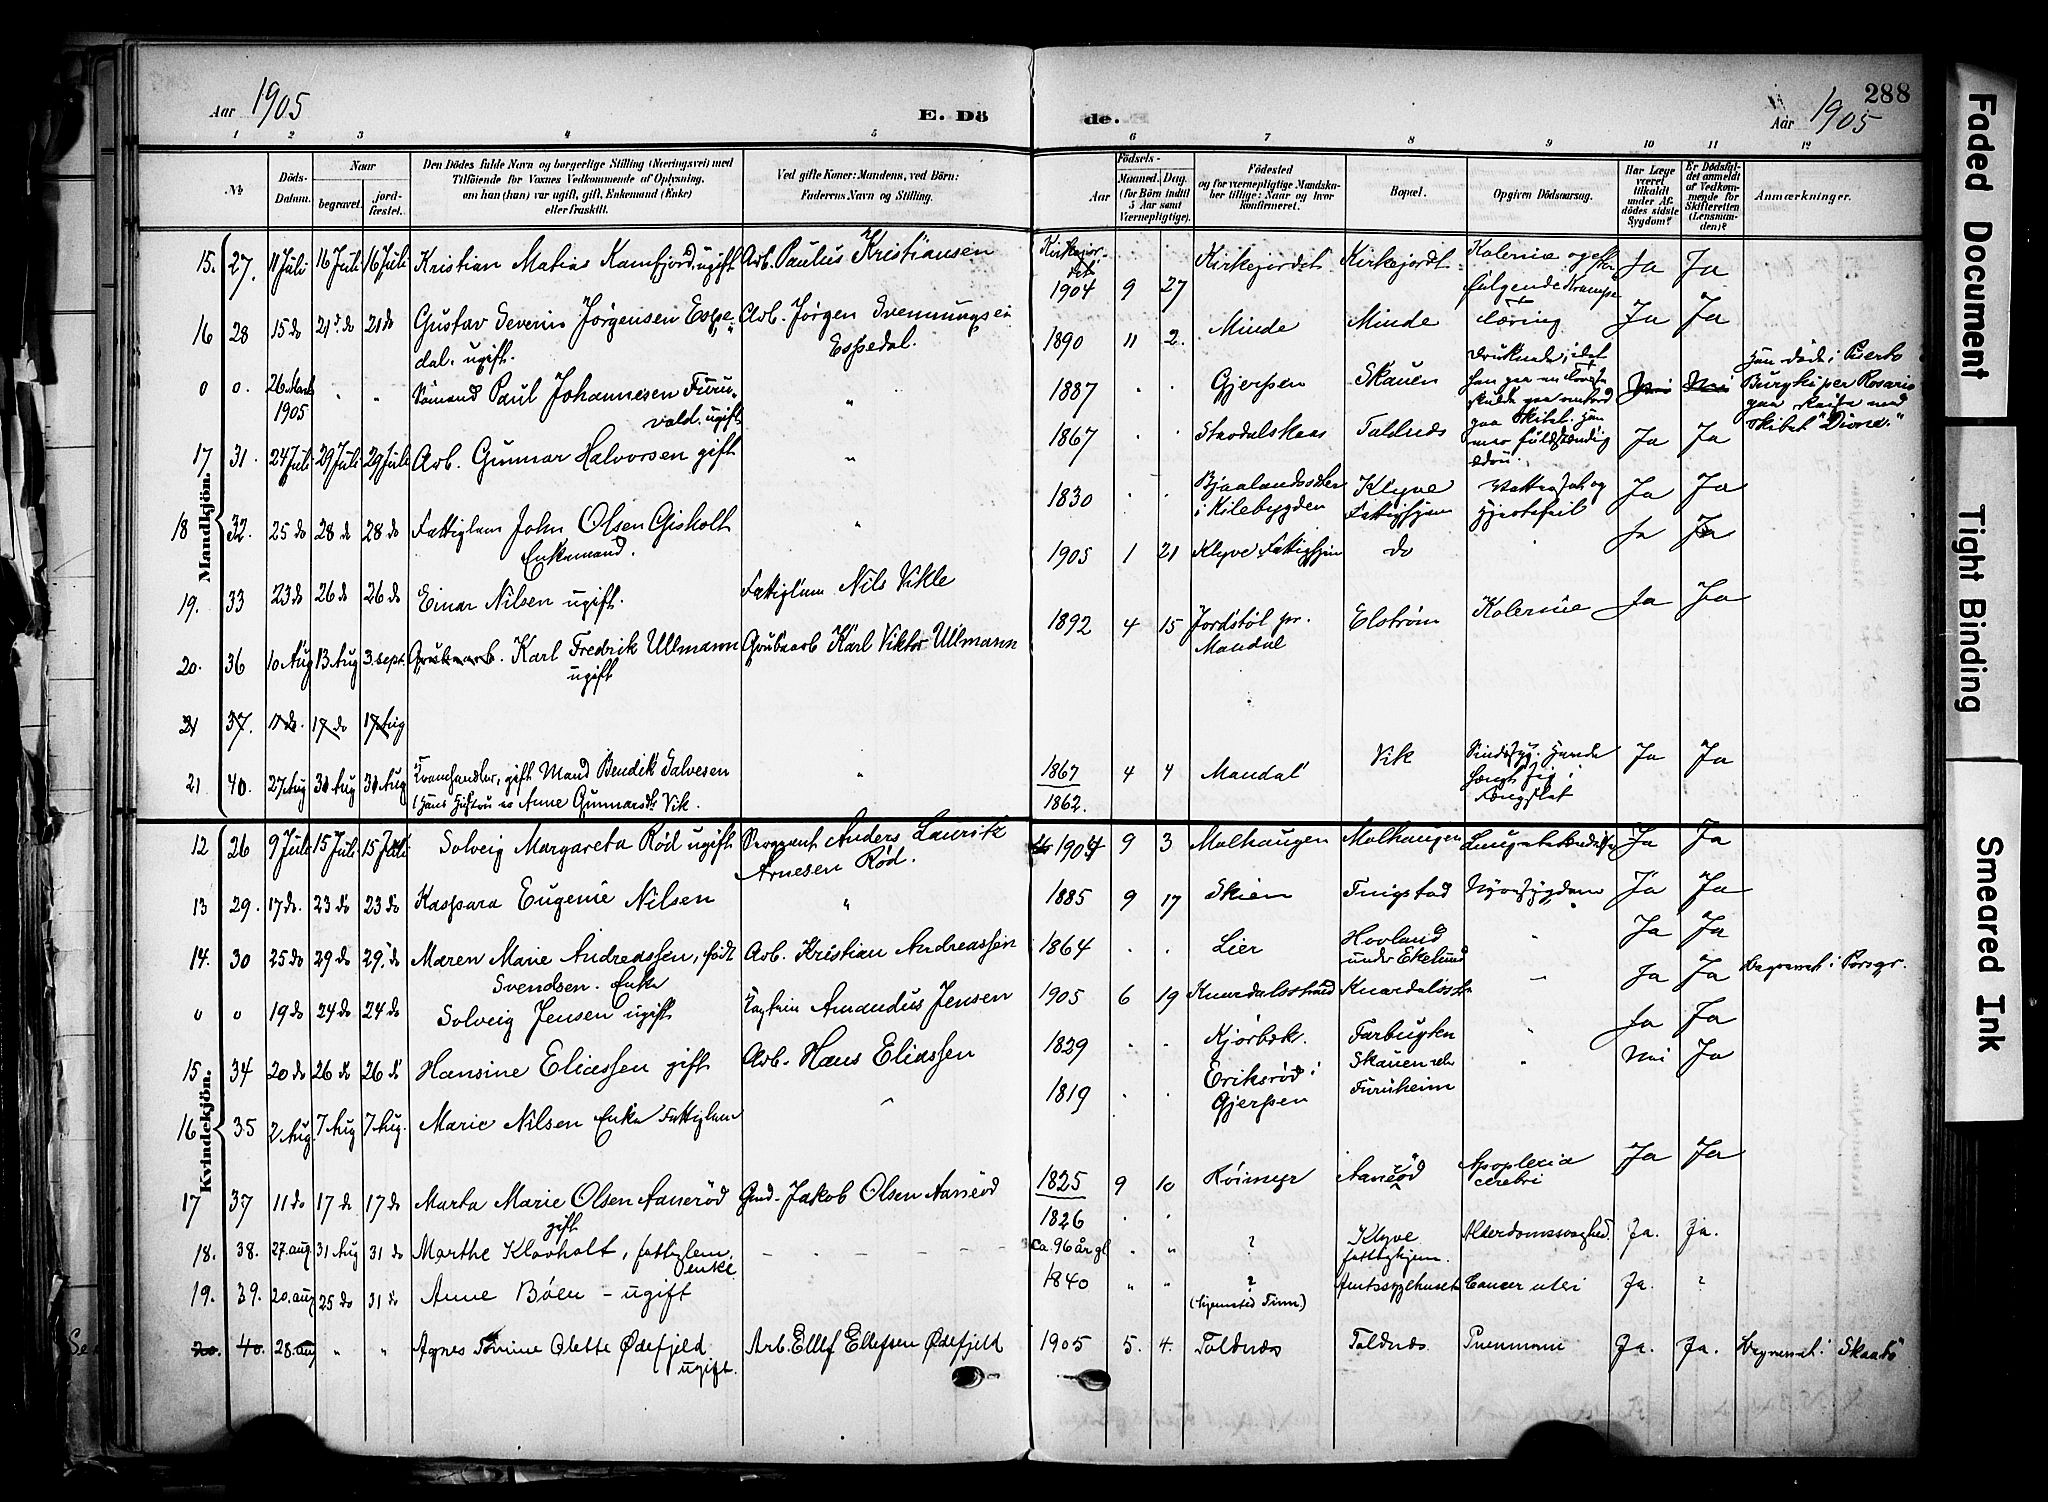 288
Aar 1905
E. Dö
de.
Aar 1905
1 2 3 4 5 6 7 8 9 10 11 12
№
Döds-Datum.
Naar
begravet.
jord-fæstet.
Den Dödes fulde Navn og borgerlige Stilling (Næringsvei) med
Tilföiende for Voxnes Vedkommende af Oplysning,
om han (hun) var ugift, gift, Enkemand (Enke)
eller fraskilt.
Ved gifte Koner: Mandens, ved Börn:
Faderens Navn og Stilling.
Födsels-
Aar
Maaned. Dag.
(for Börn indtil
5 Aar samt
Værnepligtige).
Födested
og for værnepligtige Mandska-
ber tillige: Naar og hvor
konfirmeret.
Bopæl.
Opgiven Dödsaarsag.
Har Læge
været
tilkaldt
under Af-
dödes sidste
Sygdom?
Er Dödsfal-
det anmeldt
af Vedkom-
mende for
Skifteretten
(Lensman-
den)?
Anmærkninger.
Mandkjön.
15. 27. 11 Juli 16 Juli 16 Juli Kristian Matias Kamfjord ugift Arb. Paulus Kristiansen 1904 9 27 Kirkejordet Kirkejordt Kolerine følgende Krampe Ja Ja
16 28 15 do 21 do 21 do Gustav Severin Jørgensen Espe-
dal. ugift. Arb. Jørgen Svennungsen
Espedal. 1890 11 2. Minde Minde Tæring Ja Ja
0 0. 26 Marts
1905 Sømand Paul Johannesen Furu-
vald. ugift " 1887 Gjerpen Skauen Nei Nei
Han døde i Puerto
per Rosario
paa reise med
skibet "Dione."
17 31. 24 Juli 29 Juli 29 Juli Arb. Gunnar Halvorsen gift " 1867 Toldnæs Ja Ja
18 32. 25 do 28 do 28 do Fattiglem John Olsen Gisholt
Enkemand. " 1830 i Kilebygden Klyve
Fattighjem Vattersot og
Hjertefeil Ja Ja
19. 33 23 do 26 do 26 do Einar Nilsen ugift. Fattiglem Nils Vikle 1905 1 21 Klyve Fattighjem do Ja Ja
20. 36 10 Aug 13 Aug 3 sept. Grubearb. Karl Fredrik Ullmann
ugift Grubearb Karl Viktor Ullmann 1892 4 15 Jordstøl pr.
Mandal Elstrøm Kolerine Ja Ja
21 37. 11 do. 17 do 17 Aug
21 40. 27 Aug 30 Aug 30 Aug Kramhandler, gift Mand Bendik Salvesen
(Hans Hustru er Anne Gunnarsdtr Vik. " 1867
1862. 4 4 Mandal Vik Sindssyg. Havde
hængt sig i
Fængslet Ja Ja
Kvindekjön.
12 26 9 Juli 15 Juli 15 Juli Solveig Margareta Rød ugift Sergeant Anders Laurits
Arnesen Rød. 1904 9 3 Molhaugen Molhaugen Lungebetændelse Ja Ja
13 29. 17 do. 23 do 23 do Kaspara Eugenie Nilsen " 1885 9 17 Skien Frigstad Nyresygdom Ja Ja
14. 30 25 do 29 do 29. do Maren Marie Andreassen, født
Svendsen. Enke Arb. Kristian Andreassen 1864 Lier Hovland
under Ekelund Ja Ja
0 0 19 do 24 do 24 do Solveig Jensen ugift Kaptein Amandus Jensen 1905 6 19 Knardalsstrand Knardalsstr Ja Ja Begravet i Porsgr.
15 34 20 do 26 do 26 do Hansine Eliassen gift Arb. Hans Eliassen 1829 Kjørbek. Farbugten Ja Ja
16 35 2 Aug. 7 Aug 7 Aug. Marie Nilsen Enke Fattiglem 1819 Eriksrød i
Gjerpen Skauen
Furuheim Nei Ja
17 37 11 do 17 do 17 do Marta Marie Olsen Aanerød
gift Gmd. Jakob Olsen Aanerød 1825
1826 9 10 Røimyr Aanerød Apoplexia
cerebri Ja Ja
18. 38. 27. aug 31 Aug 31 do Marthe Klovholt, fattiglem.
enke Ca. 96 år gl " " ? Klyve
fattighjem. Alderdomssvaghed. Ja. Ja.
19. 39. 20. aug 25 do 31 do Anne Bøen - ugift 1840 " " ?
(hjemsted Tinn) Amtssygehuset Cancer uteri Ja. ?
20. 40. 28. aug " " Agnes Tomine Olette Ødefjeld
ugift. Arb. Ellef Ellefsen Ødefjeld 1905 5. 4. Toldnæs Toldnæs. Pneumoni Ja. Ja. Begravet i Skaatø
Faded Document
Tight Binding
Smeared Ink